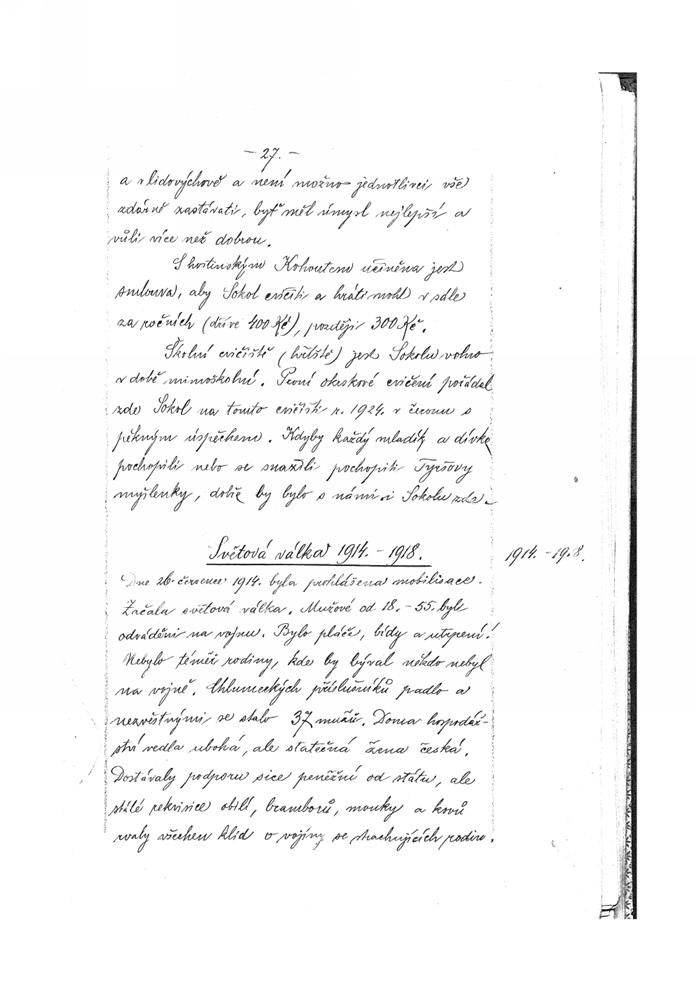 - 27. -
a v lidovýchově a není možno jednotlivci vše
zdárně zastávati, byť měl úmysl nejlepší a
vůli více než dobrou.
S hostinským Kohoutem učiněna jest
smlouva, aby Sokol cvičiti a hráti mohl v sále
za ročních (dříve 400 Kč), později 300 Kč.
Školní cvičiště (hřiště) jest Sokolu volno
v době mimoškolní. První okrskové cvičení pořádal
zde Sokol na tomto cvičišti r. 1924. v červnu s
pěkným úspěchem. Kdyby každý mladík a dívka
pochopili nebo se snažili pochopiti Tyršovy
myšlenky, dobře by bylo s námi i Sokolu zde.
Světová válka 1914. - 1918.
1914. - 1918.
Dne 26. července 1914. byla prohlášena mobilisace.
Začala světová válka. Mužové od 18. - 55. byli
odváděni na vojnu. Bylo pláče, bídy a utrpení!
Nebylo téměř rodiny, kde by býval někdo nebyl
na vojně. Chlumeckých příslušníků padlo a
nezvěstnými se stalo 37 mužů. Doma hospodář-
ství vedla ubohá, ale statečná žena česká.
Dostávaly podporu sice peněžní od státu, ale
stálé rekvisice obilí, bramborů, mouky a kovů
rvaly všechen klid o vojíny se strachujících rodin.